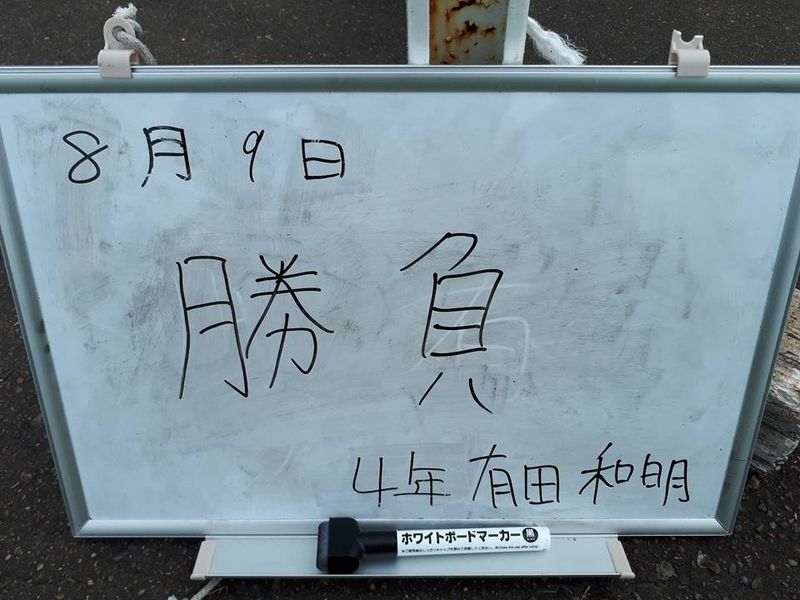 8月9日
勝負
4年 有田 和明
ホワイトボードマーカー 黒